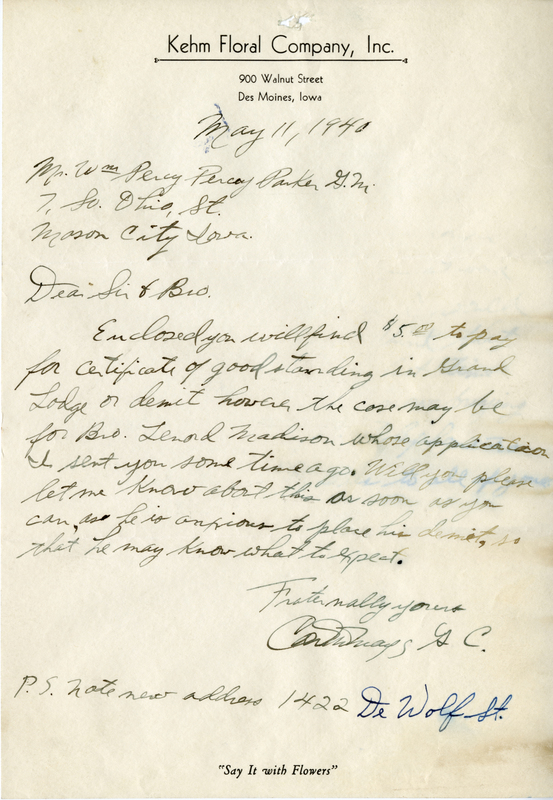 Kehm Floral Company, Inc.
900 Walnut Street
Des Moines, Iowa
May 11, 1940
Mr. Wm Percy Percy Parker G.M.
7, So. Ohio, St.
Mason City Iowa.
Dear Sir & Bro.
Enclosed you will find $5.00 to pay
for certificate of good standing in Grand
Lodge or demit however the case may be
for Bro. Lenord Madison whose application
I sent you some time ago. Will you please
let me know about this as soon as you
can, as he is anxious to place his demit, so
that he may know what to expect.
Fraternally yours
G C.
P.S. Note new address 1422 De Wolf St.
"Say It with Flowers"